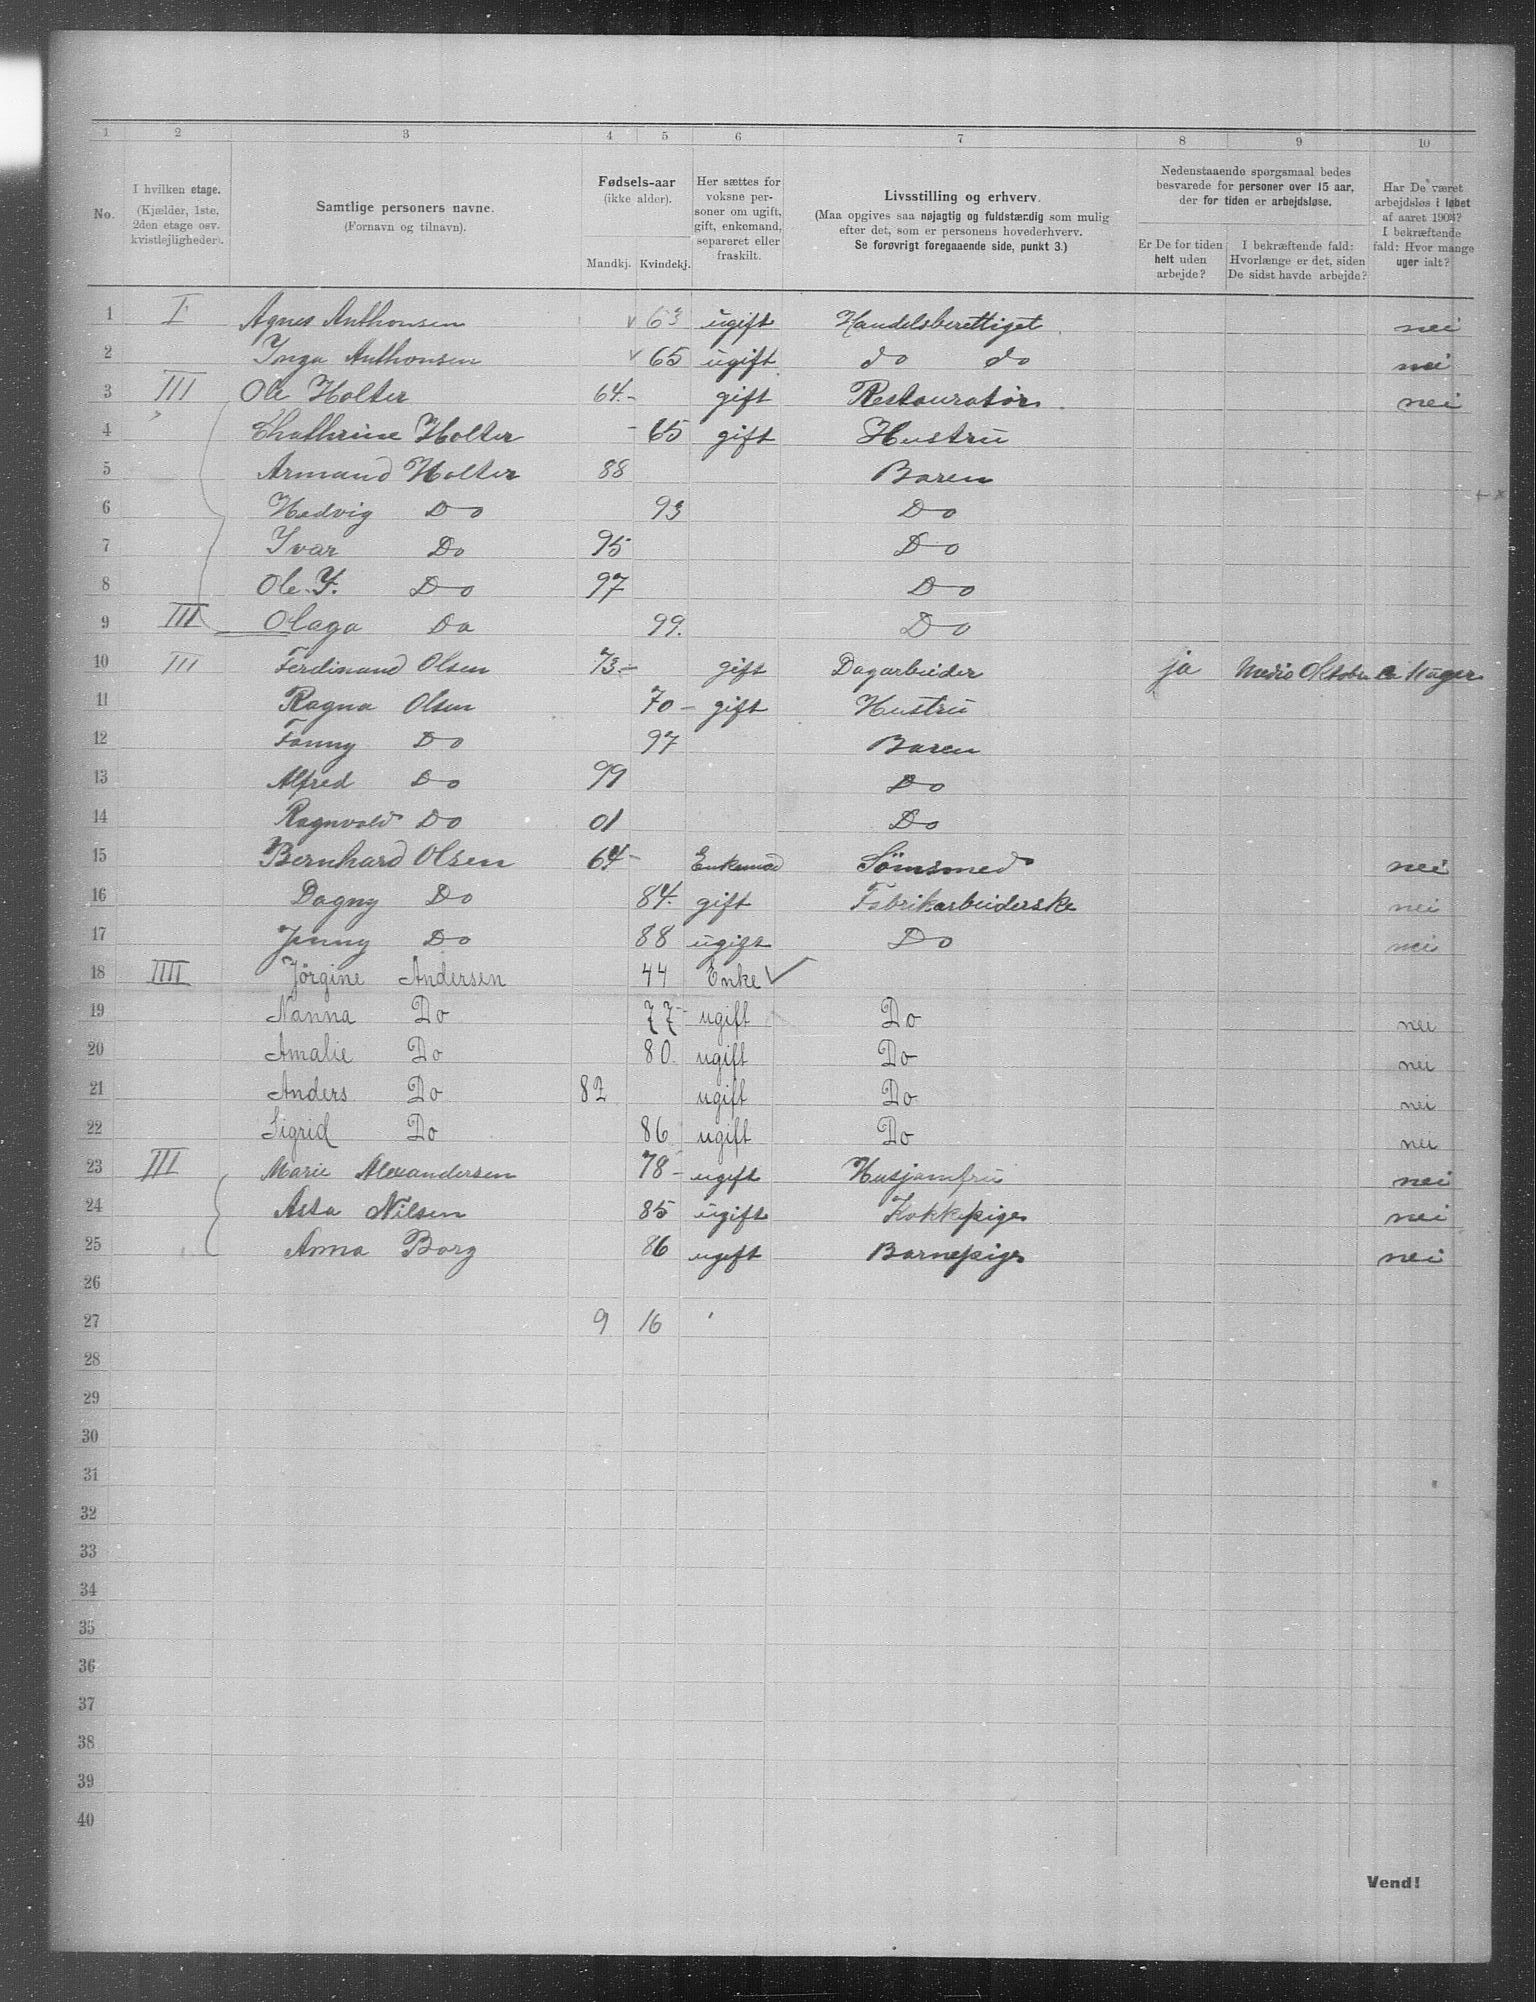 1 2 3 4 5 6 7 8 9 10
No.
I hvilken etage.
(Kjælder, 1ste, 2den etage osv. kvistlejligheder).
Samtlige personers navne.
(Fornavn og tilnavn).
Fødsels-aar
(ikke alder).
Mandkj. Kvindekj.
Her sættes for voksne personer om ugift, gift, enkemand, separeret eller fraskilt.
Livsstilling og erhverv.
(Maa opgives saa nøjagtig og fuldstændig som mulig efter det, som er personens hovederhverv.
Se forøvrigt foregaaende side, punkt 3.)
Nedenstaaende spørgsmaal bedes besvarede for personer over 15 aar, der for tiden er arbejdsløse.
Er De for tiden helt uden arbejde?
I bekræftende fald: Hvorlænge er det, siden De sidst havde arbejde?
Har De været arbejdsløs i løbet af aaret 1903? I bekræftende fald: Hvor mange uger ialt?
1 I Agnes Anthonsen v 63 ugift Handelsberettiget nei
2 Inga Anthonsen v 65 ugift do do nei
3 III Ole Holter 64 - gift Restauratør nei
4 Chathrine Holter - 65 gift Hustru
5 Armand Holter 88 Baren
6 Hedvig Do 93 Do
7 Ivar Do 95 Do
8 Ole. Do 97 Do
9 III Olaga Do 99. Do
10 III Ferdinand Olsen 73 - gift Dagarbeider ja Medio Oktober uger
11 Ragna Olsen 70 - gift Hustru
12 Fanny Do 97 Baren
13 Alfred Do 99 Do
14 Ragnvald Do 01 Do
15 Bernhard Olsen 64 - Enkemad Sömsmed nei
16 Dagny Do 84. gift Fabrikarbeiderske nei
17 Jenny Do 88 ugift Do nei
18 IIII Jörgine Andersen 44 Enke ✓
19 Nanna Do 77 - ugift Do nei
20 Amalie Do 80. ugift Do nei
21 Anders Do 82 ugift Do nei
22 Sigrid Do 86 ugift Do nei
23 III Marie Alexandersen 78 - ugift Husjomfru nei
24 Asta Nilsen 85 ugift Kokkepige nei
25 Anna Borg 86 ugift Barnepige nei
26
27 9 16
28
29
30
31
32
33
34
35
36
37
38
39
40
Vend!